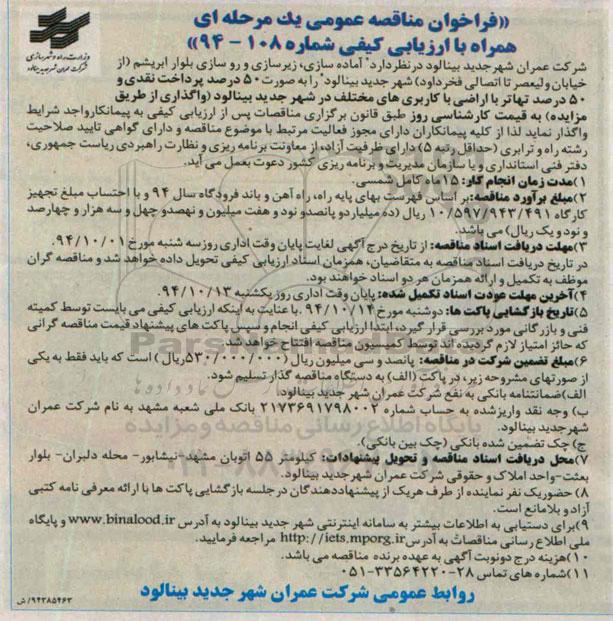 «فراخوان مناقصه عمومی یك مرحله ای
همراه با ارزیابی کیفی شماره ۱۰۸ - ۹۴»
وزارت راه و شهرسازی
شرکت عمران شهر جدید بینالود
شرکت عمران شهرجدید بینالود درنظردارد" آماده سازی، زیرسازی و رو سازی بلوار ابریشم (از
خیابان ولیعصر تا اتصالی فخرداود) شهر جدید بینالود" را به صورت ۵۰ درصد پرداخت نقدی و
۵۰ درصد تهاتر با اراضی با کاربری های مختلف در شهر جدید بینالود (واگذاری از طریق
مزایده) به قیمت کارشناسی روز طبق قانون برگزاری مناقصات پس از ارزیابی کیفی به پیمانکارواجد شرایط
واگذار نماید لذا از کلیه پیمانکاران دارای مجوز فعالیت مرتبط با موضوع مناقصه و دارای گواهی تایید صلاحیت
رشته راه و ترابری (حداقل رتبه ۵) دارای ظرفیت آزاد، از معاونت برنامه ریزی و نظارت راهبردی ریاست جمهوری،
دفتر فنی استانداری و یا سازمان مدیریت و برنامه ریزی کشور دعوت بعمل می آید.
۱)مدت زمان انجام کار: ۱۵ ماه کامل شمسی.
۲)مبلغ برآورد مناقصه: بر اساس فهرست بهای پایه راه، راه آهن و باند فرودگاه سال ۹۴ و با احتساب مبلغ تجهیز
کارگاه ۱۰/۵۹۷/۹۴۳/۴۹۱ ریال (ده میلیارد و پانصدو نود و هفت میلیون و نهصدو چهل و سه هزار و چهارصد
و نود و یک ریال) می باشد.
۳)مهلت دریافت اسناد مناقصه: از تاریخ درج آگهی لغایت پایان وقت اداری روزسه شنبه مورخ ۹۴/۱۰/۰۱.
در تاریخ دریافت اسناد مناقصه به متقاضیان، همزمان اسناد ارزیابی کیفی تحویل داده خواهد شد و مناقصه گران
موظف به تکمیل و ارائه همزمان هر دو اسناد خواهند بود.
۴)آخرین مهلت عودت اسناد تکمیل شده: پایان وقت اداری روز یکشنبه ۹۴/۱۰/۱۳.
۵)تاریخ بازگشایی پاکت ها: دوشنبه مورخ ۹۴/۱۰/۱۴. با عنایت به اینکه ارزیابی کیفی می بایست توسط کمیته
فنی و بازرگانی مورد بررسی قرار گیرد، ابتدا ارزیابی کیفی انجام و سپس پاکت های پیشنهاد قیمت مناقصه گرانی
که حائز امتیاز لازم گردیده اند توسط کمیسیون مناقصه افتتاح خواهد شد
۶)مبلغ تضمین شرکت در مناقصه: پانصد و سی میلیون ریال (۵۳۰/۰۰۰/۰۰۰ریال ) است که باید فقط به یکی
از صورتهای مشروحه زیر، در پاکت (الف) به دستگاه مناقصه گذار تسلیم شود.
الف)ضمانتنامه بانکی به نفع شرکت عمران شهر جدید بینالود.
ب) وجه نقد واریزشده به حساب شماره ۲۱۷۳۶۹۱۷۹۸۰۰۲ بانک ملی شعبه مشهد به نام شرکت عمران
شهرجدید بینالود.
ج) چک تضمین شده بانکی (چک بین بانکی).
۷)محل دریافت اسناد مناقصه و تحویل پیشنهادات: کیلومتر ۵۵ اتوبان مشهد-نیشابور- محله دلبران- بلوار
بعثت-واحد املاک و حقوقی شرکت عمران شهر جدید بینالود.
۸)حضوریک نفر نماینده از طرف هریک از پیشنهاددهندگان درجلسه بازگشایی پاکت ها با ارائه معرفی نامه کتبی
آزاد و بلامانع است.
۹)برای دستیابی به اطلاعات بیشتر به سامانه اینترنتی شهر جدید بینالود به آدرس www.binalood.ir و پایگاه
ملی اطلاع رسانی مناقصات به آدرس http://iets.mporg.ir مراجعه فرمایید.
۱۰)هزینه درج دونوبت آگهی به عهده برنده مناقصه می باشد.
۱۱)شماره های تماس ۲۸-۳۳۵۶۴۲۲۰-۰۵۱
روابط عمومی شرکت عمران شهر جدید بینالود
۹۴۳۸۵۴۶۳/ش